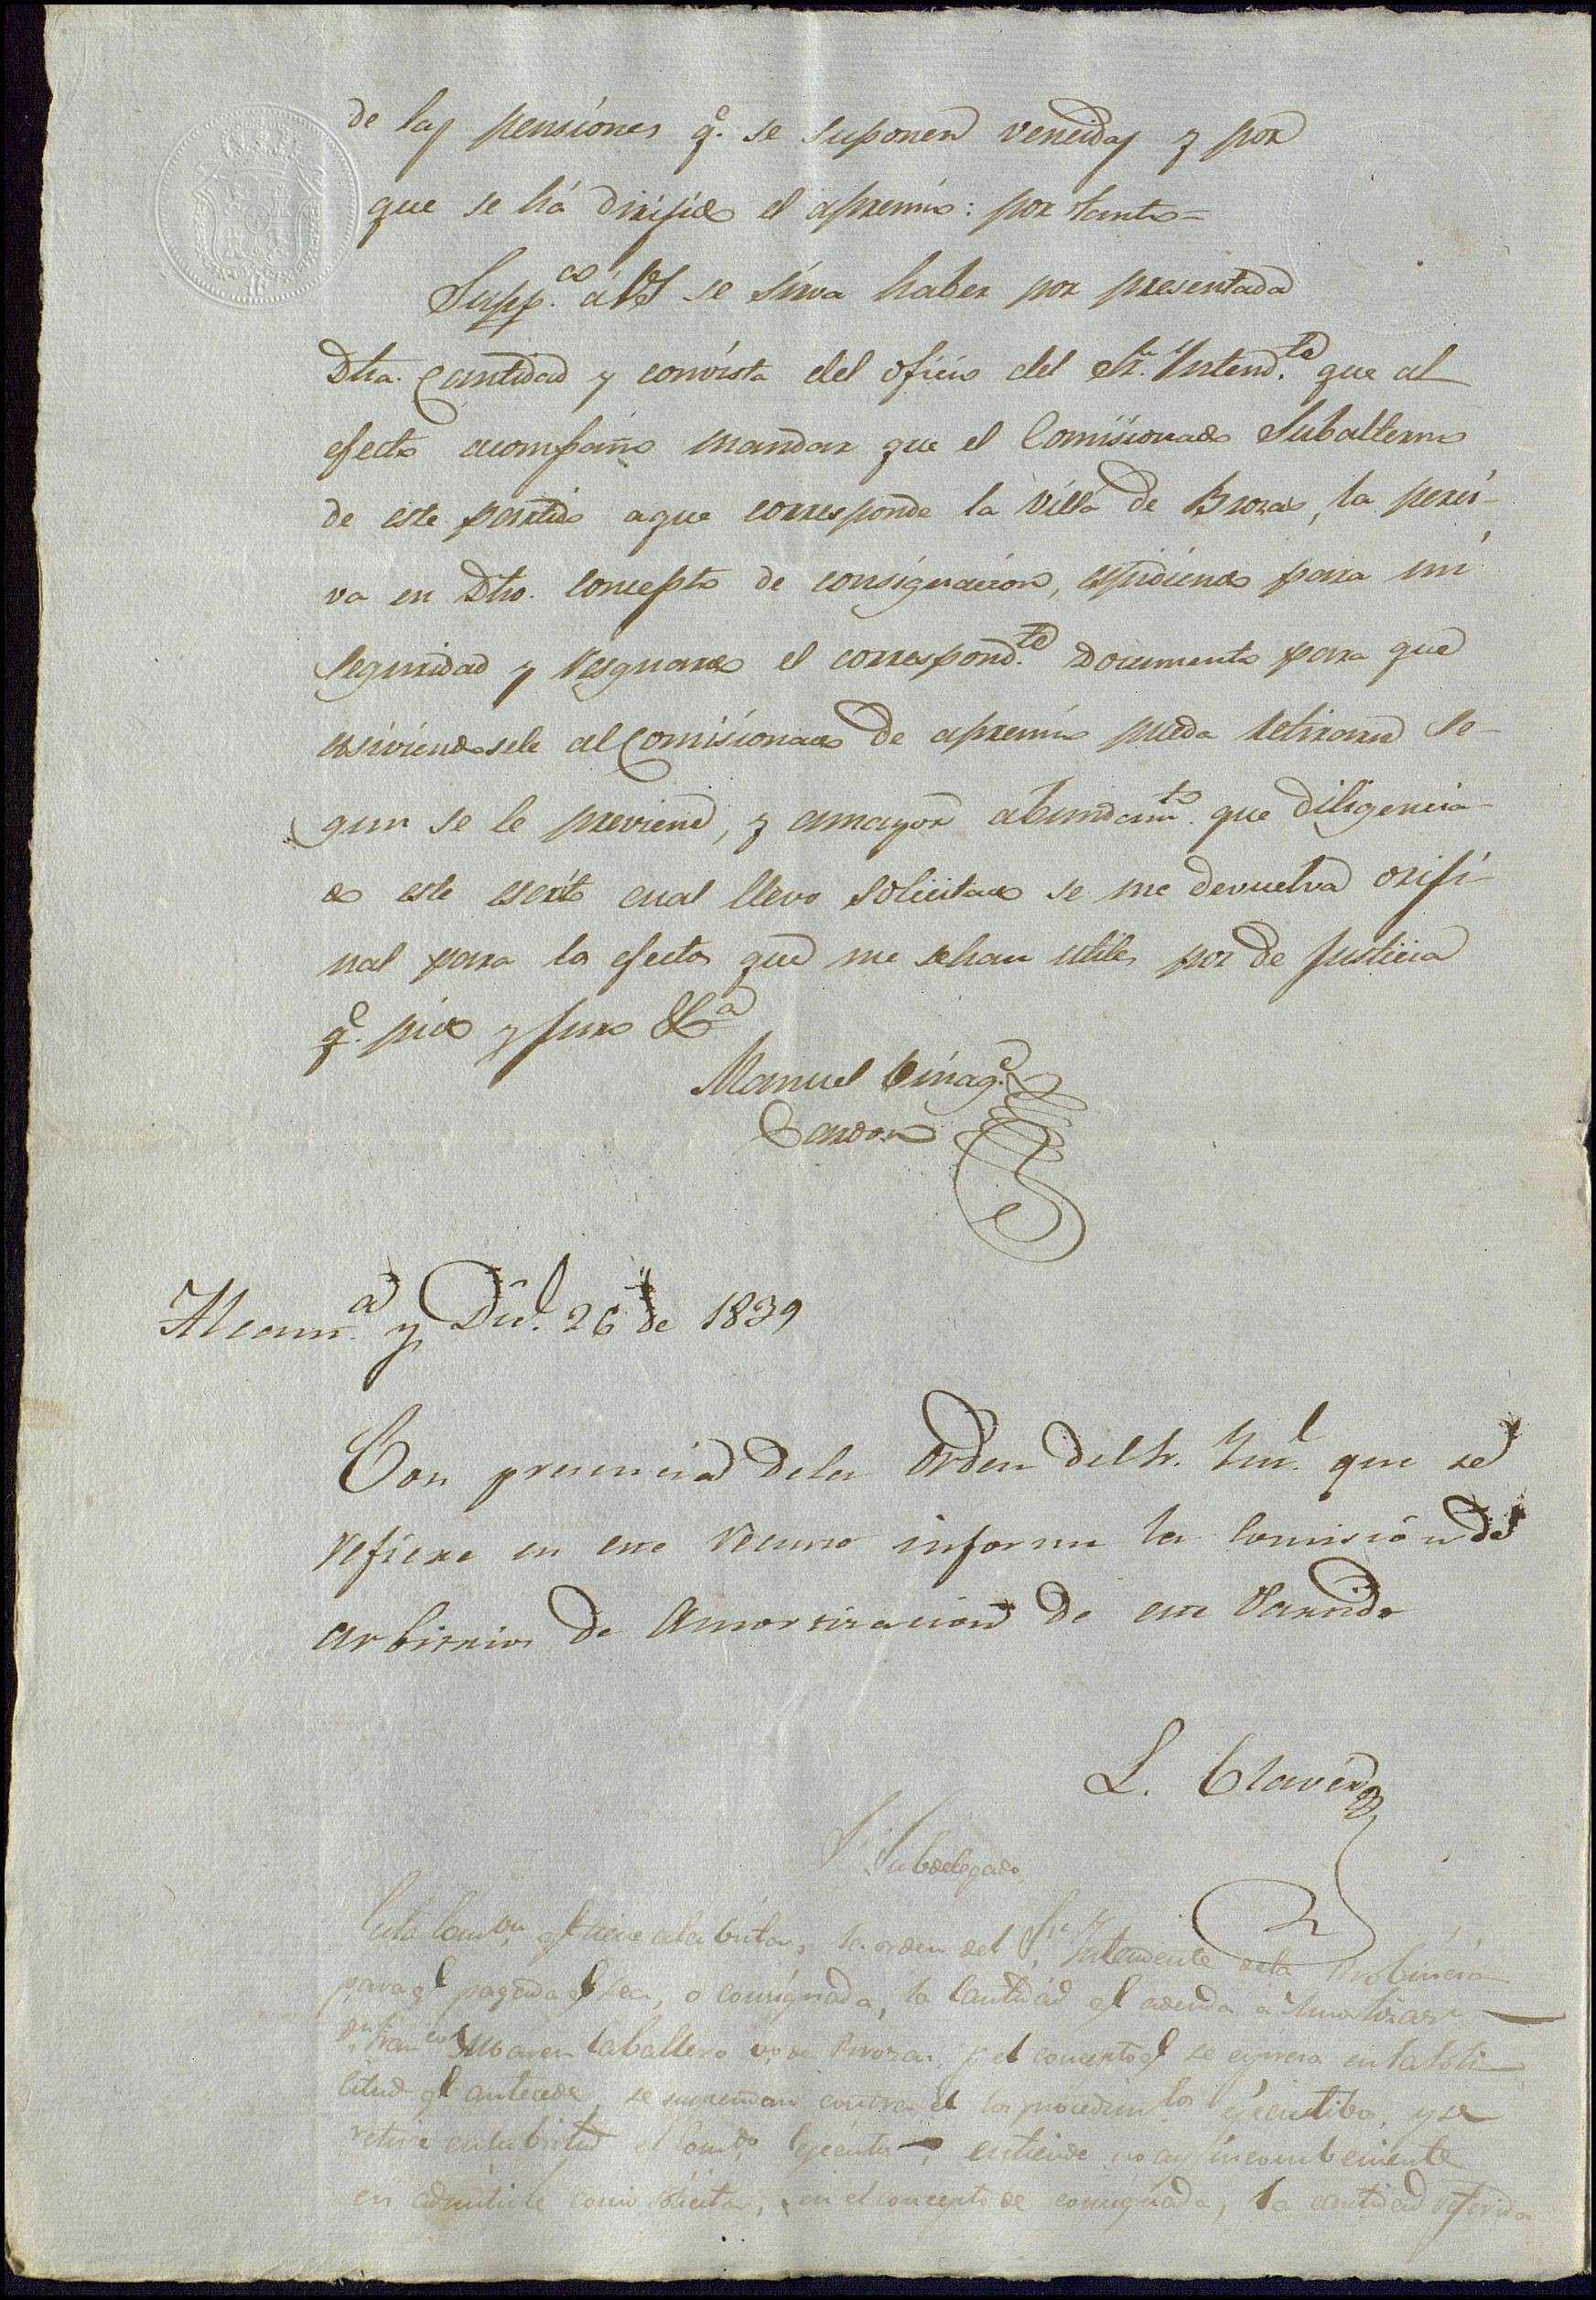 de las pensiones q.e se suponen vencidas y por
que se há dirijido el apremio: por tanto=
Supp.co á Vd se sirva haber por presentada
Dha. Cantidad y convista del oficio del Sr. Intend.te que al
efecto acompaño mandar que el Comisionado Subalterno
de este partido aque corresponde la Villa de Brozas, la perci-
va en Dho. concepto de consignacion, espidiendo para mi
seguridad y resguardo el correspond.te Documento para que
exsiviendosele al Comisionado de apremio pueda retirarse se-
gun se le previene, y amayor abundam.to que diligencia-
do este escrito cual llevo solicitado se me devuelva oriji-
nal para los efectos que me sehan utiles por de Justicia
q.e pido y juro &.a
Manuel
Alcant.a y Dic.e 26 de 1839
Con presencia dela orden del Sr. Int. que se
refiere en este recurso informe la Comision de
arbitrios de Amortizacion de este Partido
L. Claver
S. Subdelegado
Esta Com.on q.e tiene ala bista, la orden del Sr. Intendente dela Probincia
para q.e pagada q.e sea, o consignada, la Cantidad q.e adeuda a Amortizac.n
D.n Fran.co Caballero v.o de Brozas, y el concepto q.e se espresa enla soli
citud q.e antecede, se suspendan contra el los procedim.tos ejecutibos, y se
retire ensubirtud el Com.do ejecutor, entiende no ay incombeniente
en admitirle como solicita, en el concepto de consignada, la cantidad referida